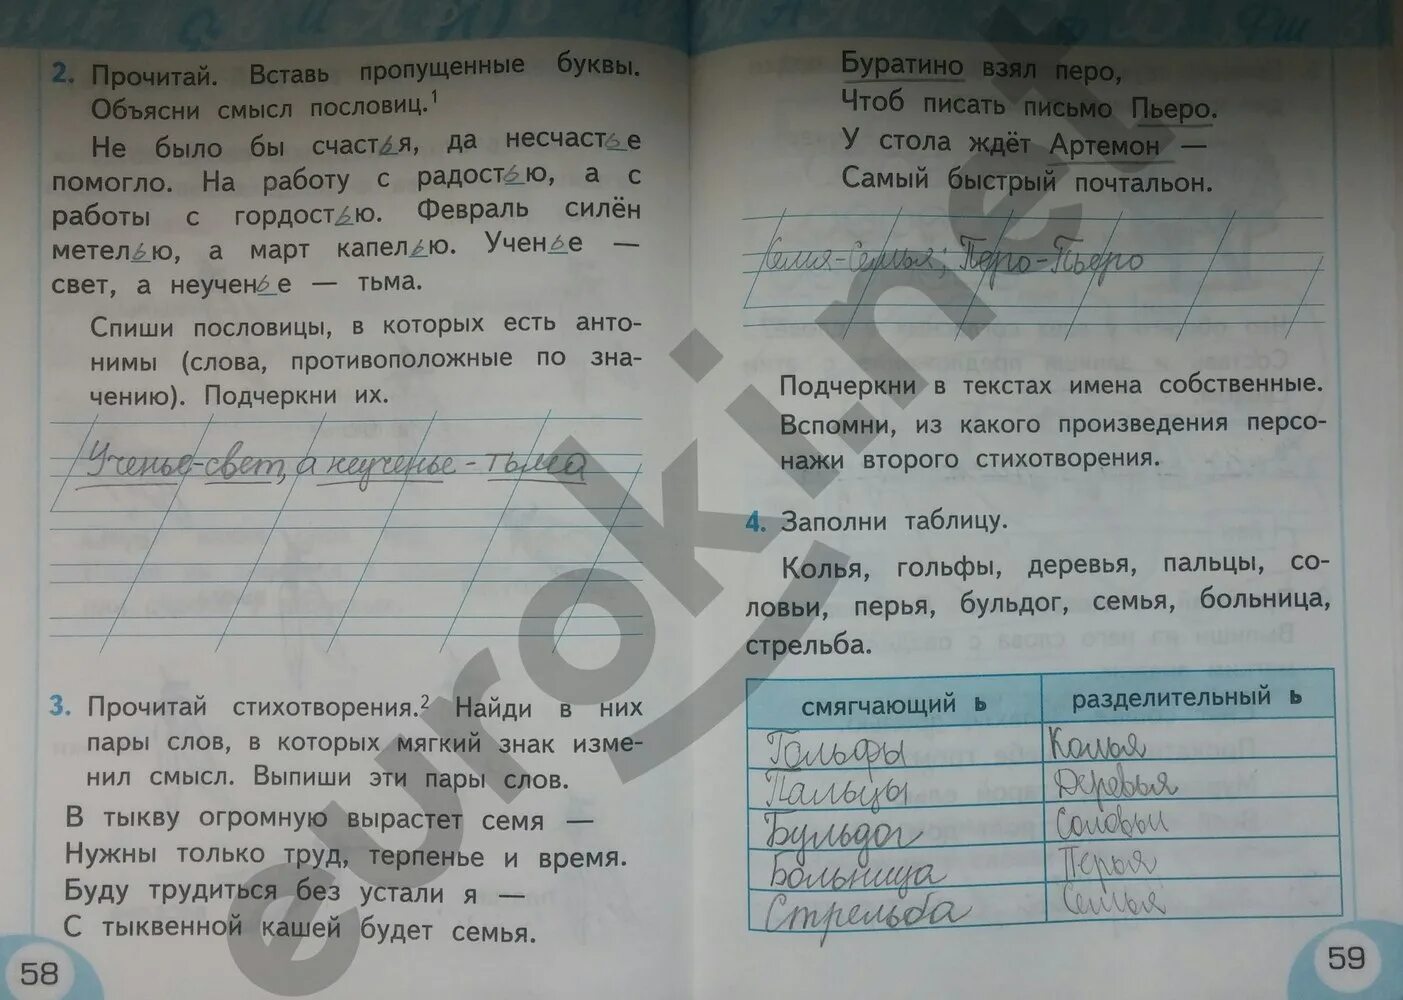 2. Прочитай. Вставь пропущенные буквы.
Объясни смысл пословиц.1
Не было бы счастья, да несчастье
помогло. На работу с радостью, а с
работы с гордостью. Февраль силён
метелью, а март капелью. Ученье —
свет, а неученье — тьма.
Спиши пословицы, в которых есть анто-
нимы (слова, противоположные по зна-
чению). Подчеркни их.
Ученье-свет, а неученье - тьма
3. Прочитай стихотворения.2 Найди в них
пары слов, в которых мягкий знак изме-
нил смысл. Выпиши эти пары слов.
В тыкву огромную вырастет семя —
Нужны только труд, терпенье и время.
Буду трудиться без устали я —
С тыквенной кашей будет семья.
58
Буратино взял перо,
Чтоб писать письмо Пьеро.
У стола ждёт Артемон —
Самый быстрый почтальон.
Семя-Семья; Перо-Пьеро
Подчеркни в текстах имена собственные.
Вспомни, из какого произведения персо-
нажи второго стихотворения.
4. Заполни таблицу.
Колья, гольфы, деревья, пальцы, со-
ловьи, перья, бульдог, семья, больница,
стрельба.
смягчающий ь разделительный ь
Гольфы Колья
Пальцы Деревья
Бульдог Соловьи
Больница Перья
Стрельба Семья
59
euroki.net